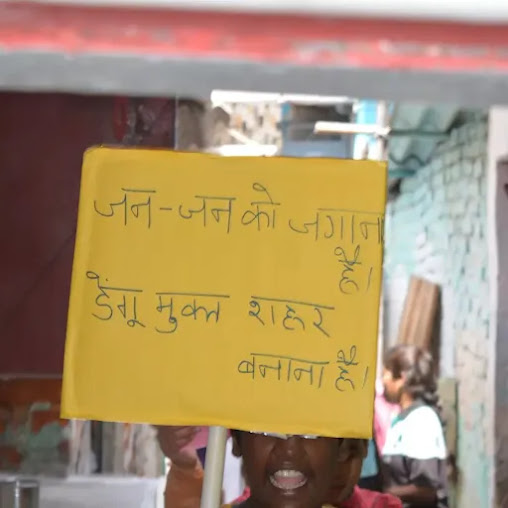 जन-जन को जगाना
है।
डेंगू मुक्त शहर
बनाना है।